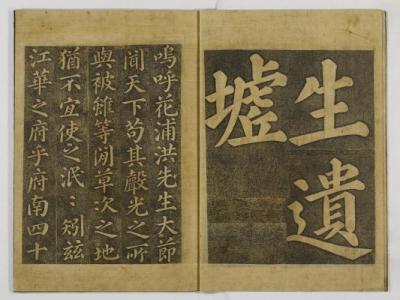 生遺
墟
嗚呼花浦洪先生大節
聞天下苟其聲光之所
與被雖等閒草次之地
猶不宜使之泯〻矧玆
江華之府乎府南四十